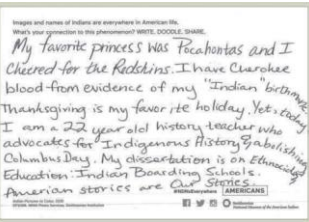 Images and names of Indians are everywhere in American life.
What's your connection to this phenomenon? WRITE, DOODLE, SHARE.
My favorite princess was Pocahontas and I
cheered for the Redskins. I have Cherokee
blood-from evidence of my "Indian" birthmark
Thanksgiving is my favorite holiday. Yet, today
I am a 22 year old history teacher who
advocates for Indigenous History & abolishing
Columbus Day. My dissertation is on Ethnocidal
Education: Indian Boarding Schools.
American stories are Our Stories.
#NDNsEverywhere AMERICANS
Smithsonian
National Museum of the American Indian